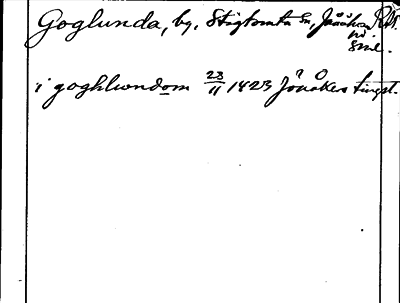 Goglunda, by, Stigtomta sn, Jönåkers
hd
Sml.
i goghlwndom 23/11 1423 Jönåkers tingst.